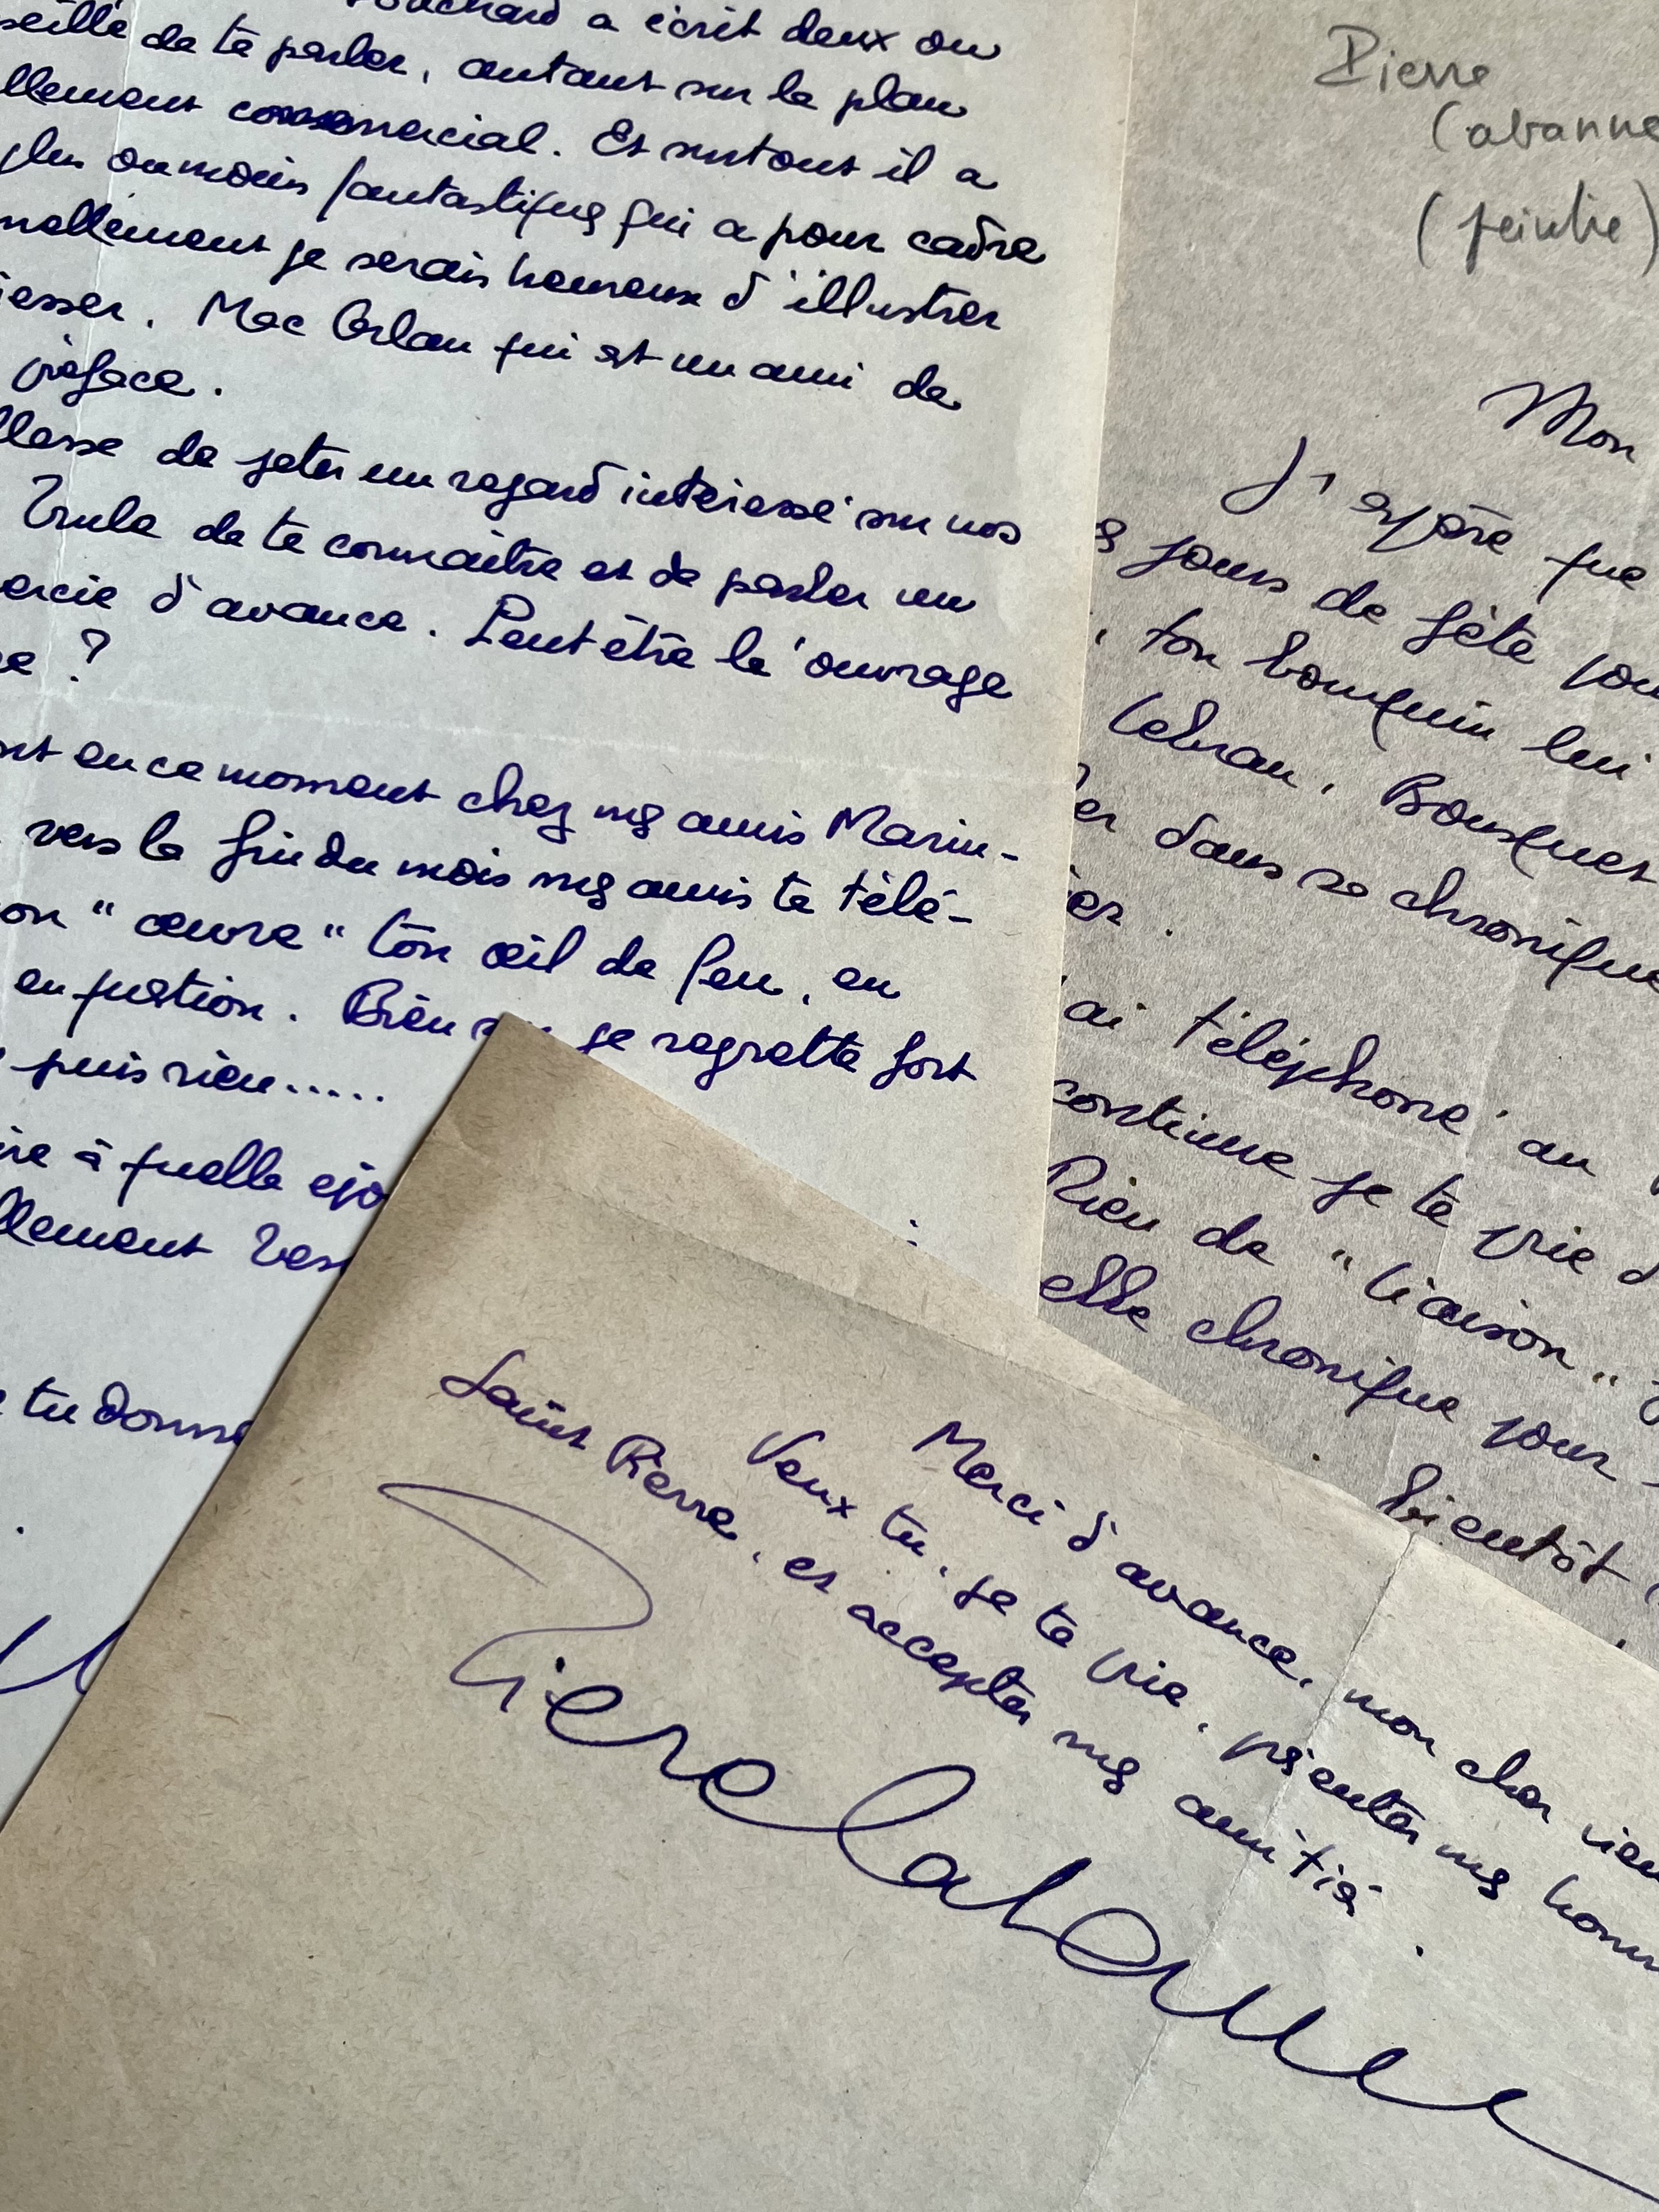 a écrit deux ou
de te parler, autant sur le plan
llement commercial. Et surtout il a
plus ou moins fantastique qui a pour cadre
nellement je serais heureux d'illustrer
esser. Mac Orlan qui est un ami de
préface.
de jeter un regard intéressé sur nos
de te connaître et de parler un
ercie d'avance. Peut être le ouvrage
?
en ce moment chez mes amis Marin-
vers la fin du mois mes amis te télé-
on "œuvre" ton œil de feu, en
en question. Bien je regrette fort
puis rien.....
à quelle
llement
tu donne
Pierre
(abanne
(peintre)
Mon
J'espère que
jours de fête pou
, ton bouquin lui
Lebrau, Bousquet
er dans sa chronique
ier.
ai téléphoné au
continue je te prie d
Rien de "Liaison"
elle chronique pour
bientôt
Merci d'avance, mon cher vieu
Veux tu, je te prie, présenter mes hom
Saint Pierre, et accepter mes amitiés.
Pierre Cabanne